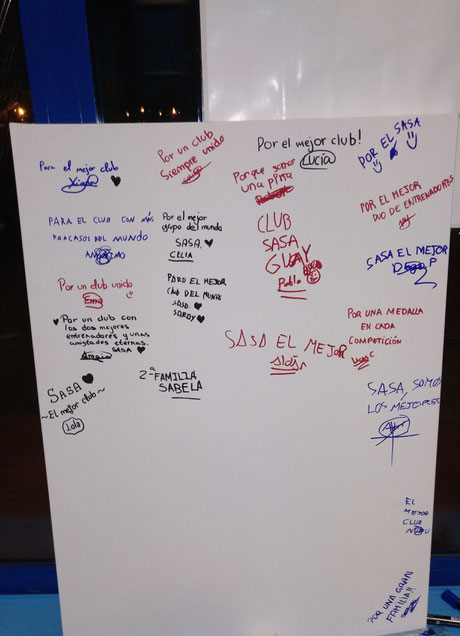 Para el mejor club
PARA EL CLUB CON MÁS
PAYASOS DEL MUNDO
Por un club unido
Ema
Por un club con
los dos mejores
entrenadores y unas
amistades eternas.
SASA
SASA
~El mejor club~
Lola
Por un club
siempre unido
Por el mejor
grupo del mundo
SASA.
CELIA
PARA EL MEJOR
CLUB DEL MUNDO
SASA.
2ª FAMILIA
SABELA
Por el mejor club!
Lucía
Porque
una piña
CLUB
SASA
GUAY
Pablo
SASA EL MEJOR
POR EL SASA
POR EL MEJOR
DUO DE ENTRENADORES
SASA EL MEJOR
POR UNA MEDALLA
EN CADA
COMPETICIÓN
SASA, SOMOS
LOS MEJORES
EL
MEJOR
CLUB
POR UNA GRAN
FAMILIA!!